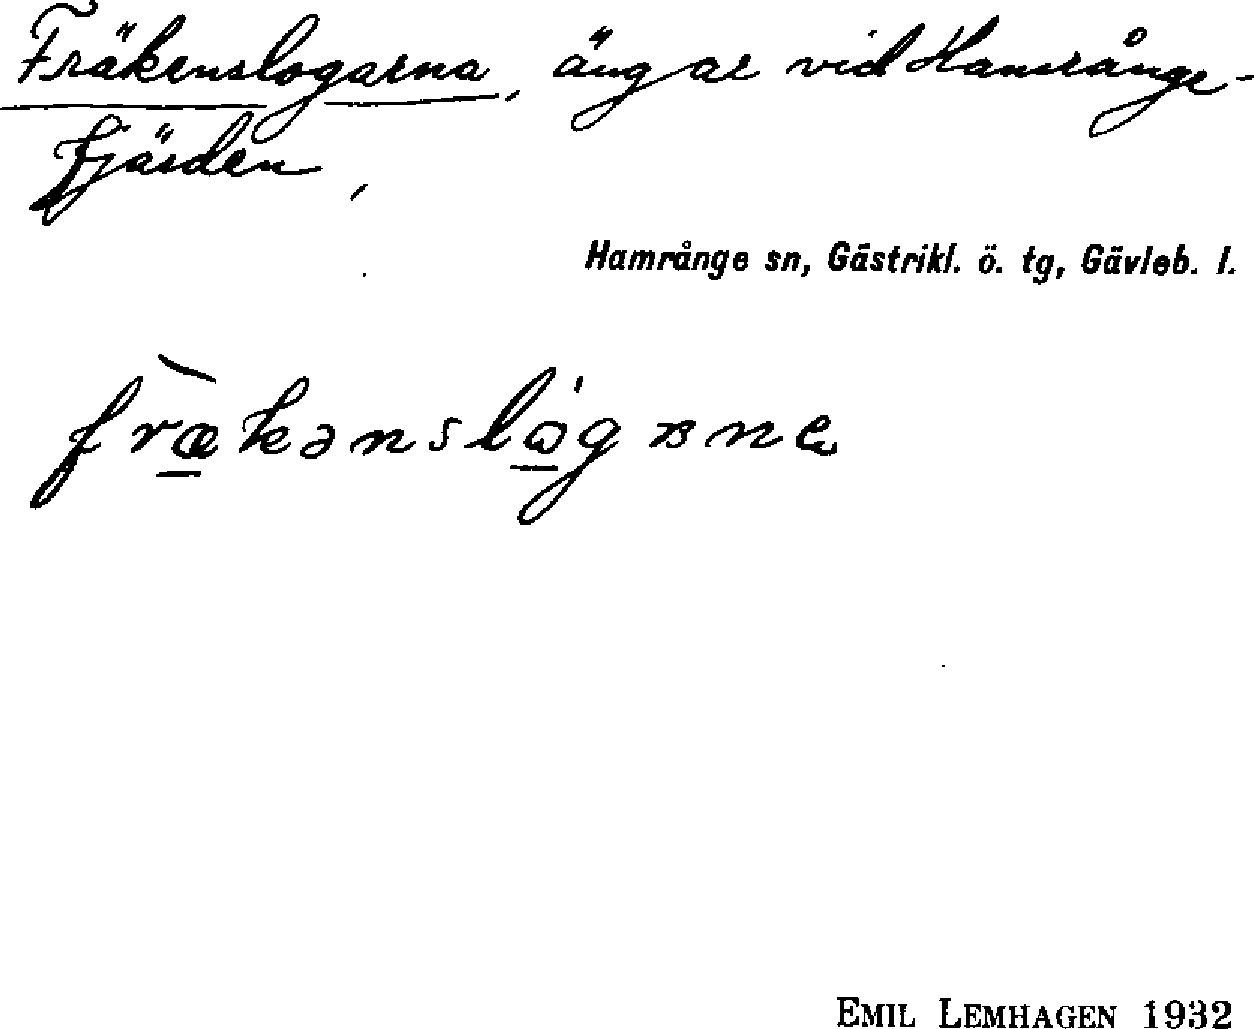 Fräkenslogarna, ängar vid Hamrånge-
fjärden,
Hamrånge sn, Gästrikl. ö. tg, Gävleb. l.
EMIL LEMHAGEN 1932